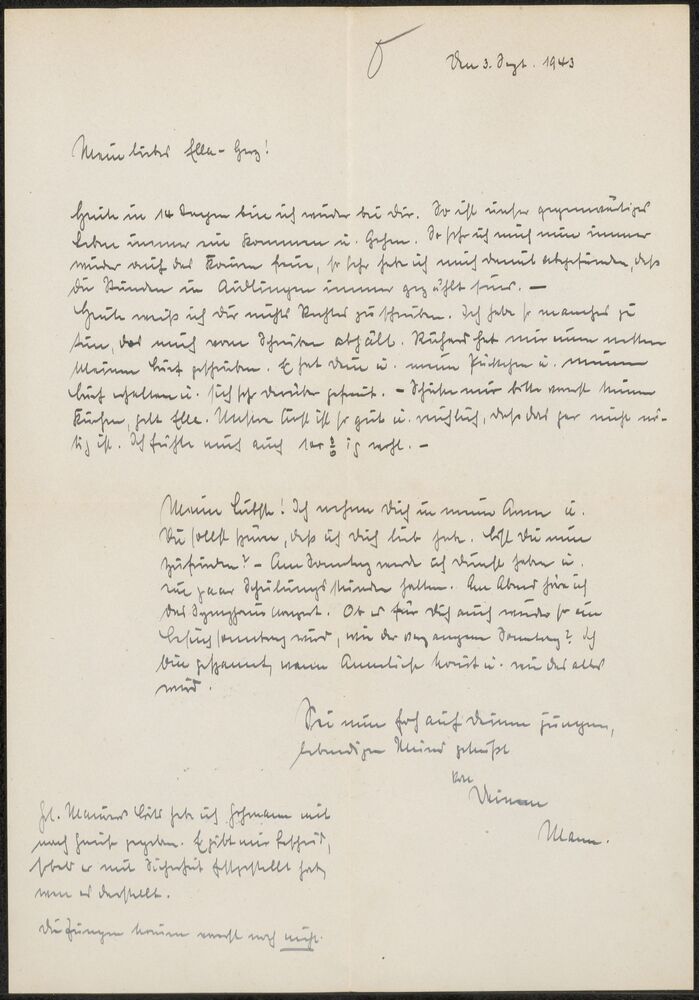 Den 3. Sept. 1943
Mein liebes Ella-Herz!
Heute in 14 Tagen bin ich wieder bei Dir. So ist unser gegenwärtiges
Leben immer ein Kommen u. Gehen. So sehr ich mich nun immer
wieder auf das Kommen freue, so sehr habe ich mich damit abgefunden, daß
die Stunden in immer gezählt sind. —
Heute weiß ich Dir nichts Rechtes zu schreiben. Ich habe so manches zu
tun, das mich vom Schreiben abhält. Richard hat mir einen netten
kleinen Brief geschrieben. E hat Dein u. mein Päckchen u. meinen
Brief erhalten u. sich sehr darüber gefreut. – Schicke mir bitte vorerst keinen
Kuchen, gelt Ella. Unsere Kost ist so gut u. reichlich, daß das gar nicht nö-
tig ist. Ich fühle mich auch wohl. –
Meine Liebste! Ich nehme Dich in meine Arme u.
Du sollst spüren, daß ich Dich lieb habe. Bist Du nun
zufrieden? – Am Sonntag werde ich Dienst haben u.
ein paar Schulungsstunden halten. Am Abend höre ich
das Symphoniekonzert. Ob es für Dich auch wieder so ein
Besuchssonntag wird, wie der vergangene Sonntag? Ich
bin gespannt, wann Anneliese kommt u. wie das alles
wird.
Sei nun hoch auf Deinen jungen,
lebendigen Mund geküßt
von
Deinem
Mann.
Hl. Brief habe ich mit
nach Hause gegeben. E gibt mir Bescheid,
sobald er mit Sicherheit festgestellt hat,
wen es darstellt.
Die Jungen kommen vorerst noch nicht.